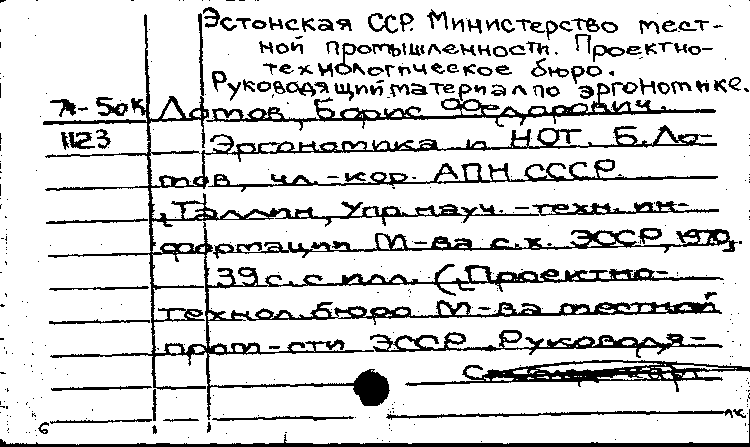 Эстонская ССР. Министерство мест-
ной промышленности. Проектно-
технологическое бюро.
Руководящий материал по эргономике.
71-50к Ломов, Борис Федорович.
1123 Эргономика и НОТ. Б. Ло-
мов, чл.-кор. АПН СССР.
Таллин, Упр. науч.-техн. ин-
формации М-ва с.х. ЭССР, 1970.
39 с. с илл. (Проектно-
технол. бюро М-ва местной
пром-сти ЭССР. Руководя-
6